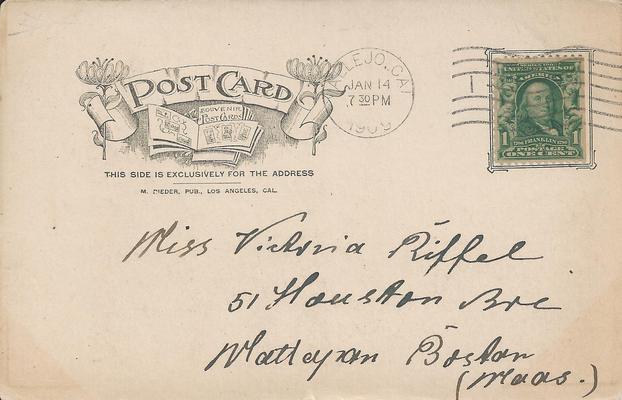 POST CARD
SOUVENIR
POST CARDS
LEJO, CAL
JAN 14
7 30 PM
1909
UNITED STATES OF
AMERICA
1
FRANKLIN
POSTAGE
ONE CENT
THIS SIDE IS EXCLUSIVELY FOR THE ADDRESS
M. RIEDER, PUB., LOS ANGELES, CAL.
Miss Victoria Riffel
51 Houston Ave
Mattapan Boston
(Mass.)